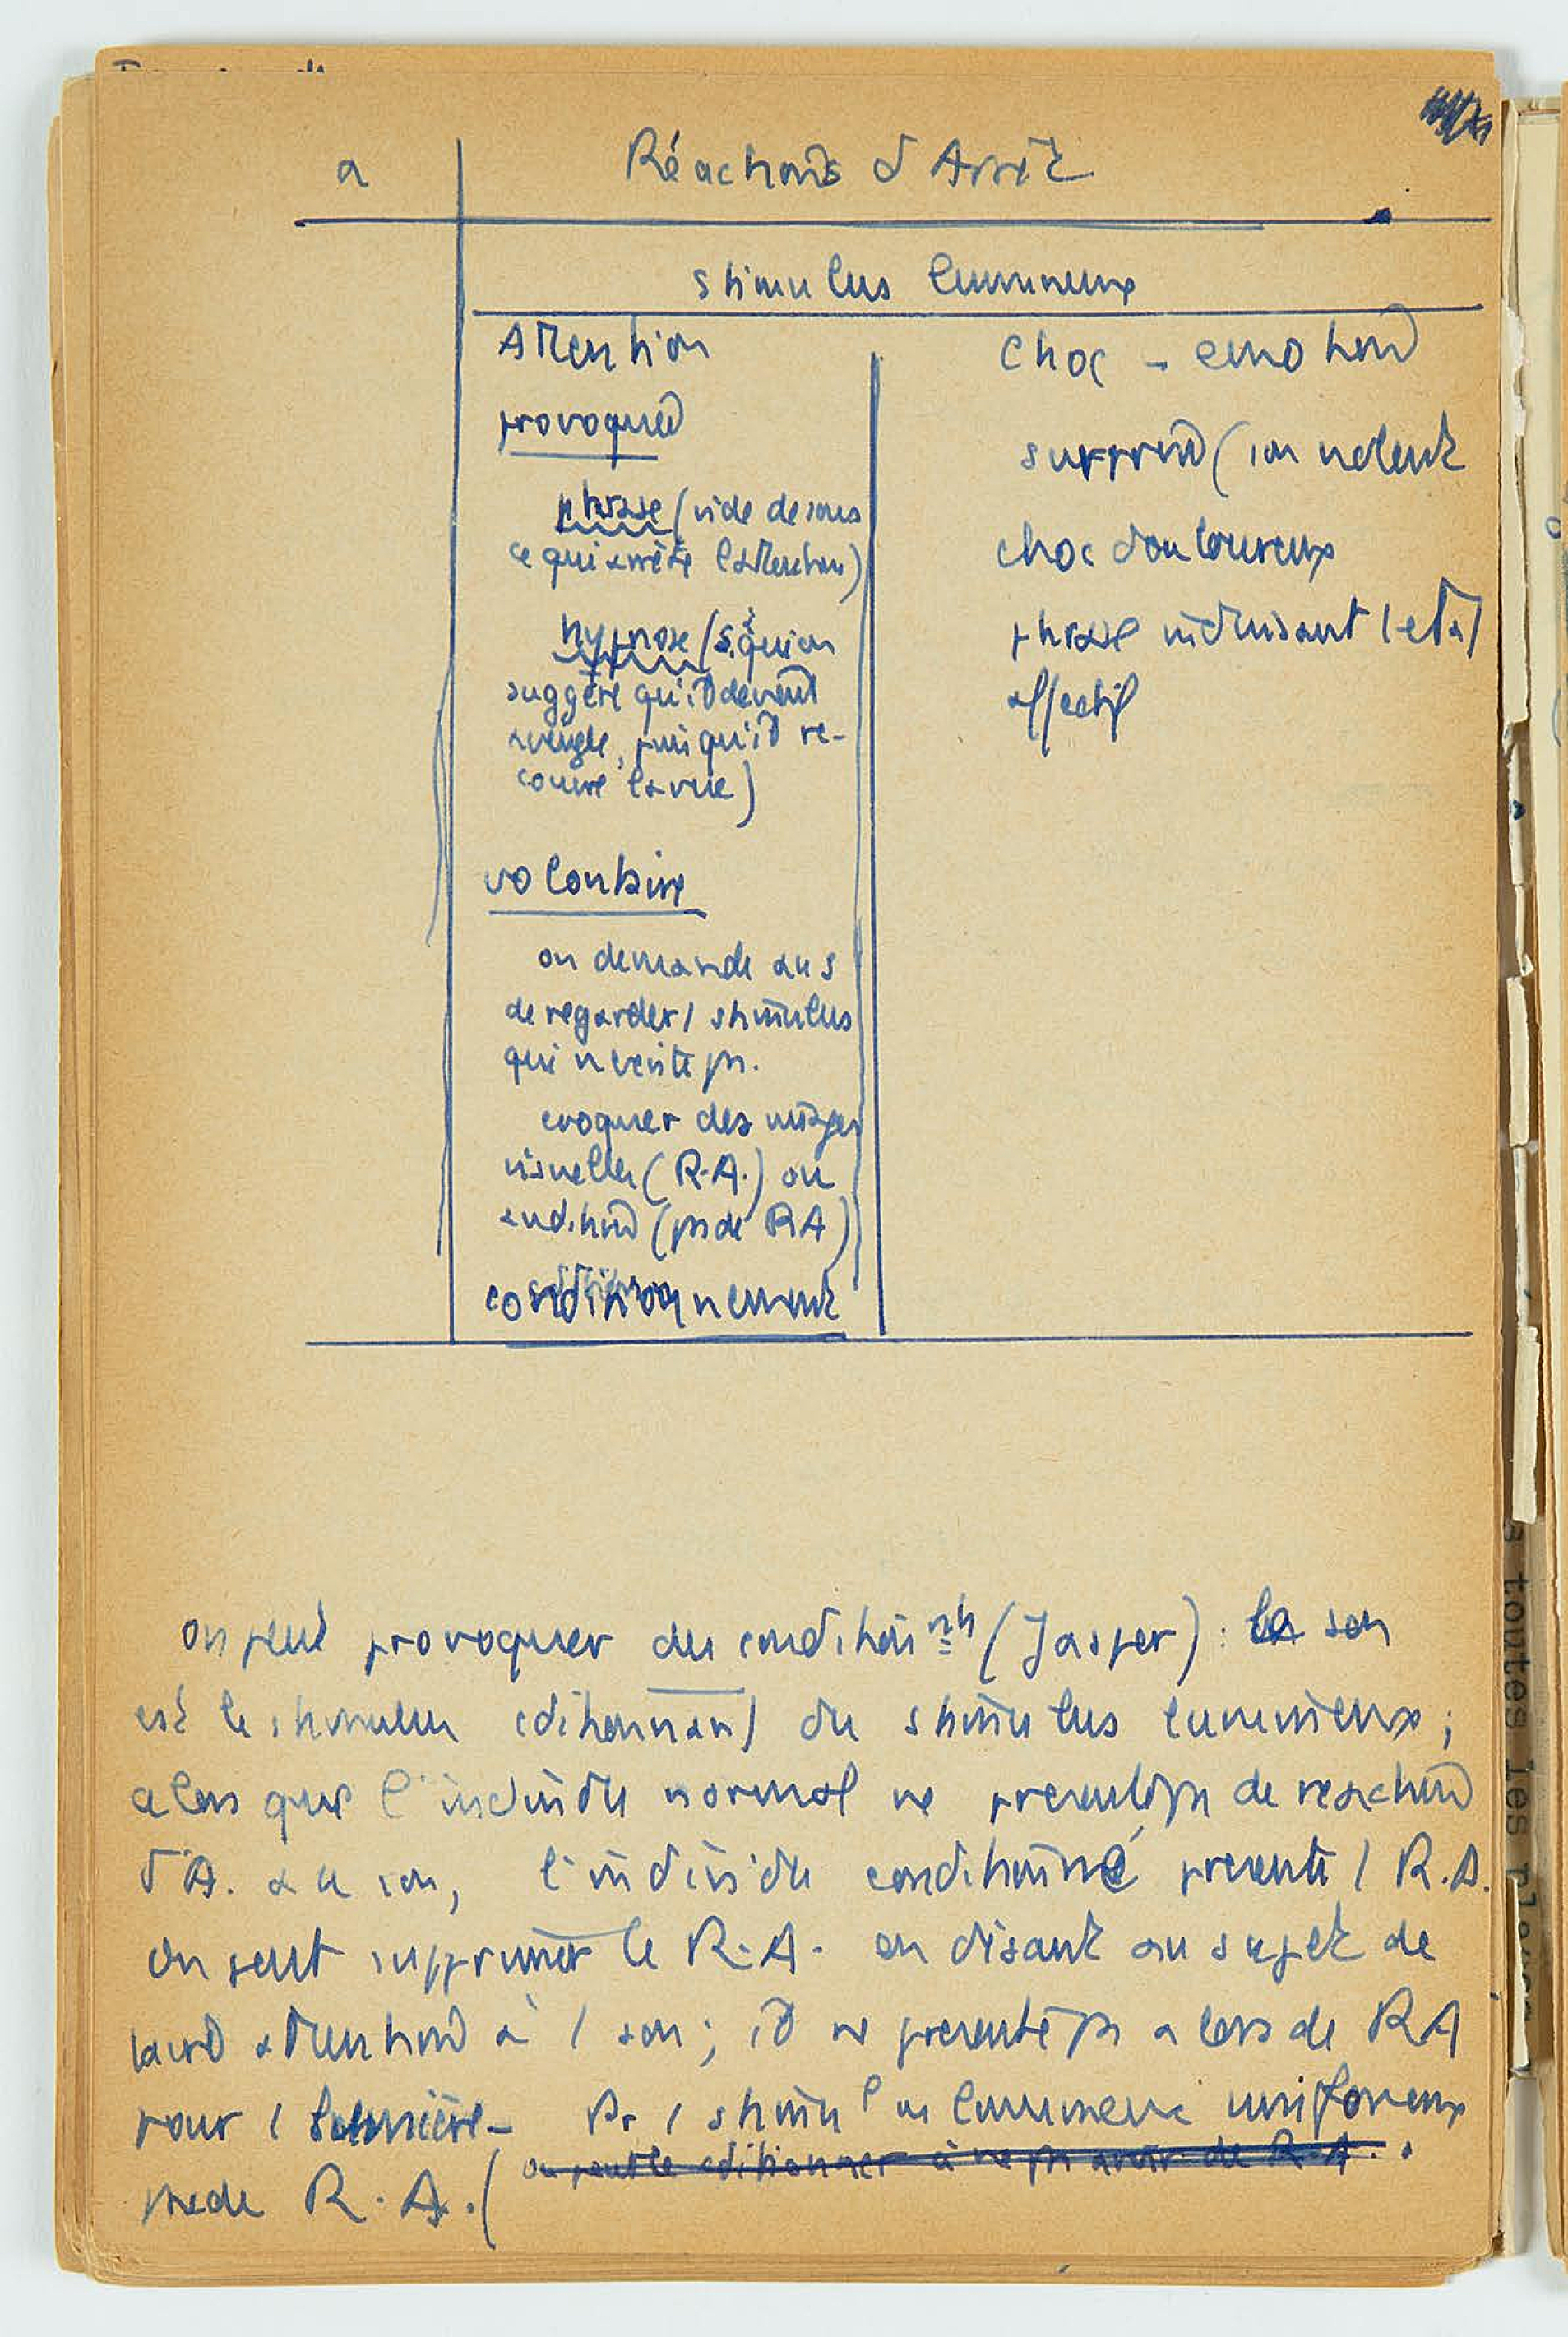 a
Réactions d'Arrêt
stimulus lumineux
Attention
provoquée
phrase (vide de sens
ce qui arrête l'attention)
hypnose (S. à qui on
suggère qu'il devient
aveugle, puis qu'il re-
couvre la vue)
volontaire
on demande au S
de regarder 1 stimulus
qui n'existe ps.
evoquer des images
visuelles (R.A.) ou
auditive (ps de RA)
conditionnement
choc - emotion
surprise (son violent
choc douloureux
phrase induisant 1 etat
affectif
on peut provoquer des conditionnts (Jasper) : le son
est le stimulus cditionnant du stimulus lumineux ;
alors que l'individu normal ne presente ps de reaction
d'A. au son, l'individu conditionné presente 1 R.A.
On peut supprimer le R.A. en disant au sujet de
attention à 1 son ; il ne presente ps alors de RA
pour 1 lumière - Pr 1 stimulus lumineux
pas de R.A. (
on peut le cditionner à ne ps avoir de R.A.
a toutes les